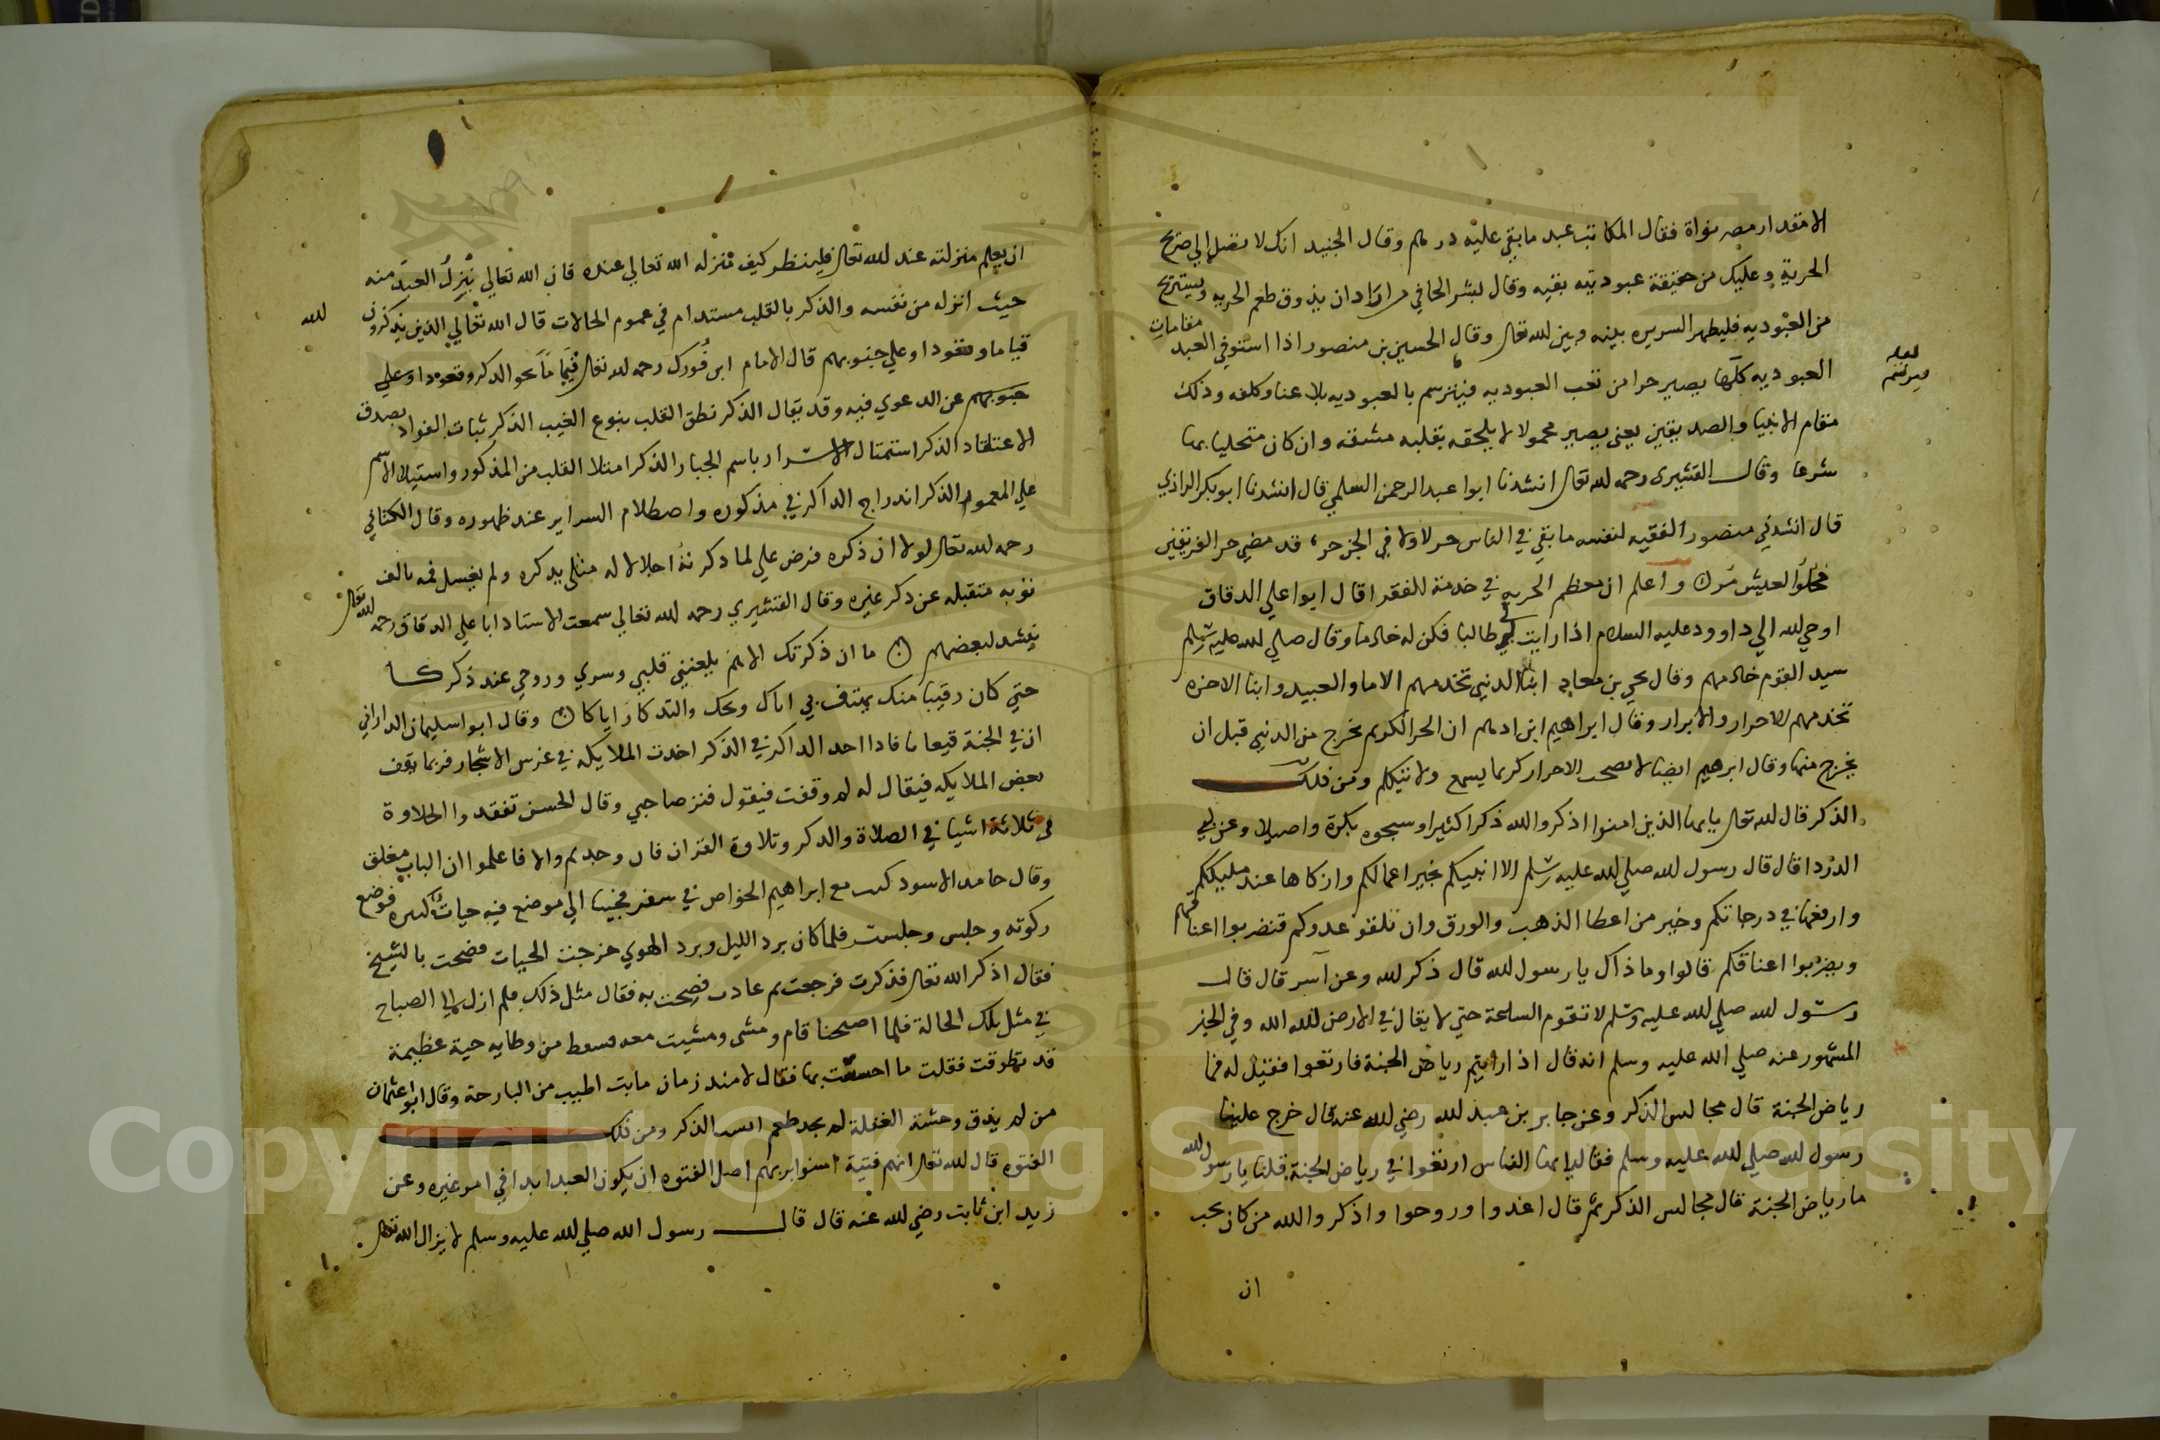 الا مقدار مص نواة فقال المكاتب عبد ما بقي عليه درهم وقال الجنيد انك لا تصل الي صريح
الحرية وعليك من حقيقة عبوديته بقيه وقال بشر الحافي من اراد ان يذوق طعم الحريه ويستريح
من العبوديه فليطهر السريره بينه وبين الله تعالى وقال الحسين بن منصور اذا استوفي العبد مقامات
العبوديه كلها يصير حرا من تعب العبوديه فيترسم بالعبوديه بلا عنا وكلفه وذلك
مقام الانبيا والصديقين يعني يصير محمولا لا يلحقه بقلبه مشقه وان كان متحليا بها
شرعا وقال القشيرى رحمه الله تعالى انشدنا ابوا عبد الرحمن السلمي قال انشدنا ابو بكر الرازي
قال انشدني منصور الفقيه لنفسه ما بقي في الناس حر لا ولا في الجن حر، قد مضي حر الفريقين
فحلو العيش مر واعلم ان معظم الحريه في خدمة الفقرا قال ابوا علي الدقاق
اوحي الله الي داوود عليه السلام اذا رايت لي طالبا فكن له خادما وقال صلي الله عليه وسلم
سيد القوم خادمهم وقال يحي بن معاد ابنا الدنيي تخدمهم الاما والعبيد وابنا الاخره
تخدمهم الاحرار والابرار وقال ابراهيم ابن ادهم ان الحر الكريم يخرج من الدنيي قبل ان
يخرج منها وقال ابرهيم ايضا لا تصحب الاحرار كريما يسمع ولا يتكلم ومن ذلك
الذكر قال الله تعالى يا يها الذين امنوا اذكروا الله ذكرا كثيرا وسبحوه بكرة واصيلا وعن ابي
الدردا قال قال رسول الله صلي الله عليه وسلم الا انبيكم بخير اعمالكم وازكاها عند مليككم
وارفعها في درجاتكم وخير من اعطا الذهب والورق وان تلقو عدوكم فتضربوا اعناقهم
ويضربوا اعناقكم قالوا وما ذاك يا رسول الله قال ذكر الله وعن انس قال قال
رسول الله صلي الله عليه وسلم لا تقوم الساعة حتي لا يقال في الارض الله الله وفي الخبر
المشهور عنه صلي الله عليه وسلم انه قال اذا رايتم رياض الجنة فارتعوا فقيل له فما
رياض الجنة قال مجالس الذكر وعن جابر بن عبد الله رضي الله عنه قال خرج علينا
رسول الله صلي الله عليه وسلم فقال يا يها الناس ارتعوا في رياض الجنة قلنا يا رسول الله
ما رياض الجنة قال مجالس الذكر ثم قال اغدوا وروحوا واذكروا الله من كان يحب
ان
ان يعلم منزلته عند الله تعالى فلينظر كيف منزله الله تعالي عنده فان الله تعالي ينزل العبد منه
حيث انزله من نفسه والذكر بالقلب مستدام في عموم الحالات قال الله تعالي الذين يذكرون الله
قياما وقعودا وعلي جنوبهم قال الامام ابن فورك رحمه الله تعالى قياما بحق الذكر وقعودا وعلي
جنوبهم عن الدعوي فيه وقد يقال الذكر نطق القلب بنوع الغيب الذكر ثبات الفواد بصدق
الاعتقاد الذكر استمتال الاسرار باسم الجبار الذكر امتلا القلب من المذكور واستيلا الاسم
علي المعموم الذكر اندراج الذاكر في مذكوره واصطلام السراير عند ظهوره وقال الكتاني
رحمه الله تعالى لولا ان ذكره فرض علي لما ذكرته اجلالا له مثلي يذكره ولم يغسل فمه بالف
توبه متقبله عن ذكر غيره وقال القشيري رحمه الله تعالي سمعت الاستاد ابا علي الدقاق رحمه الله تعالى
ينشد لبعضهم ما ان ذكرتك الا هم يلعنني قلبي وسري وروحي عند ذكركا
حتي كان رقيبا منك يهتف بي اياك ويحك والتذكار اياكا وقال ابوا سليمان الداراني
ان في الجنة قيعانا فاذا اخذ الذاكر في الذكر اخذت الملايكه في غرس الاشجار فربما يقف
بعض الملايكه فيقال له لم وقفت فيقول فتر صاحبي وقال الحسن تفقدوا الحلاوة
في ثلاثة اشيا في الصلاة والذكر وتلاوة القران فان وجدتم والا فاعلموا ان الباب مغلق
وقال حامد الاسود كنت مع ابراهيم الخواص في سفر فجينا الي موضع فيه حيات كثيره فوضع
ركوته وجلس وجلست فلما كان برد الليل وبرد الهوي خرجت الحيات فصحت بالشيخ
فقال اذكر الله تعالى فذكرت فرجعت ثم عادت فصحت به فقال مثل ذلك فلم ازل الي الصباح
في مثل تلك الحالة فلما اصبحنا قام ومشى ومشيت معه فسقط من وطايه حية عظيمة
قد تطوقت فقلت ما احسست بها فقال لا منذ زمان ما بت اطيب من البارحة وقال ابوا عثمان
من لم يذق وحشة الغفلة لم يجد طعم انس الذكر ومن ذلك
الفتوه قال الله تعالى انهم فتية امنوا بربهم اصل الفتوه ان يكون العبد ابدا في امر غيره وعن
زيد ابن ثابت رضي الله عنه قال قال رسول الله صلي الله عليه وسلم لا يزال الله تعالى
Copyright © King Saud University